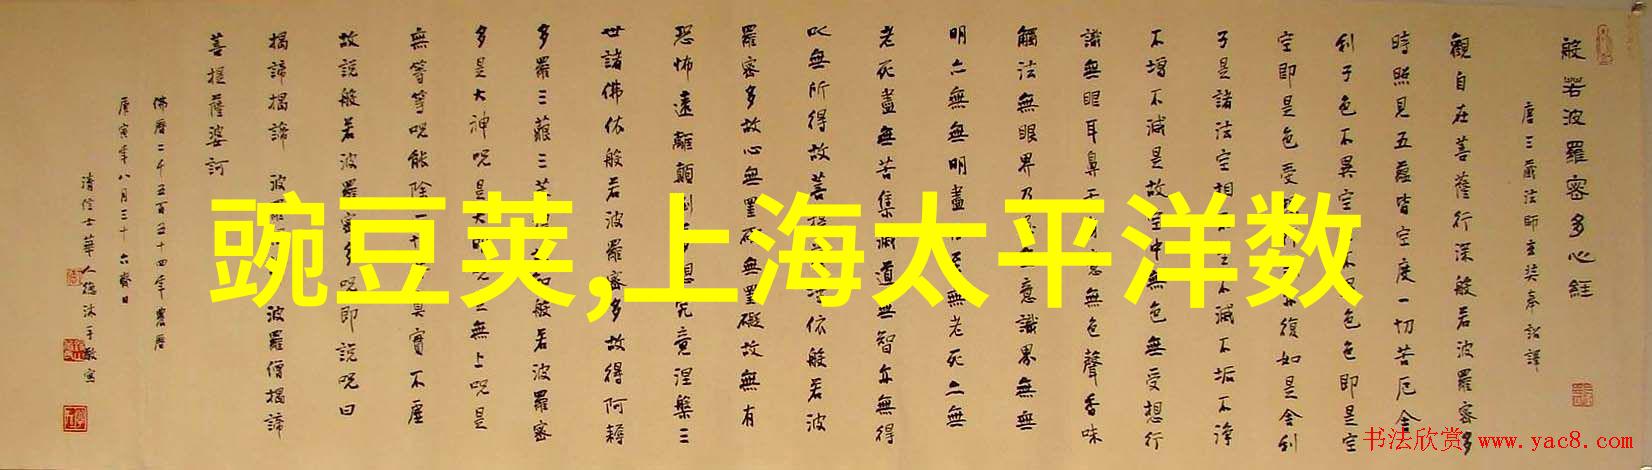 豌豆荚,上海太平洋数
般若波羅密多心経
唐三藏法師玄奘奉詔譯
觀自在菩薩行深般若波羅密多
時照見五蘊皆空度一切苦厄舍
利子色不異空不色色即是空
空即是色受行亦復如是舍利
子是諸法空相不生不滅不垢不淨
不增不減是故空中無色無受想行
識無眼耳鼻舌意無色聲香味
觸法無眼界乃至意識界無無
明亦無無明盡至無老死亦無
老死盡無苦集滅道無智亦無得
以無所得故菩提埵依般若波
羅密多故心無罣礙無罣礙故無有
恐怖遠離顛倒想究竟涅槃三
世諸佛依般若波羅密多故得阿耨
多羅三藐三菩知般若波羅密
多是大神呪是大明呪是無上呪是
無等等呪能除一切真實不虛
故說般若波羅密多呪即說呪曰
揭諦揭諦 波羅 波羅僧揭諦
菩提薩婆訶
佛曆二千五百五十四年農曆
庚寅年八月三十六齋日
清信士華人德沐手敬寫
书法欣赏 www.yac8.com